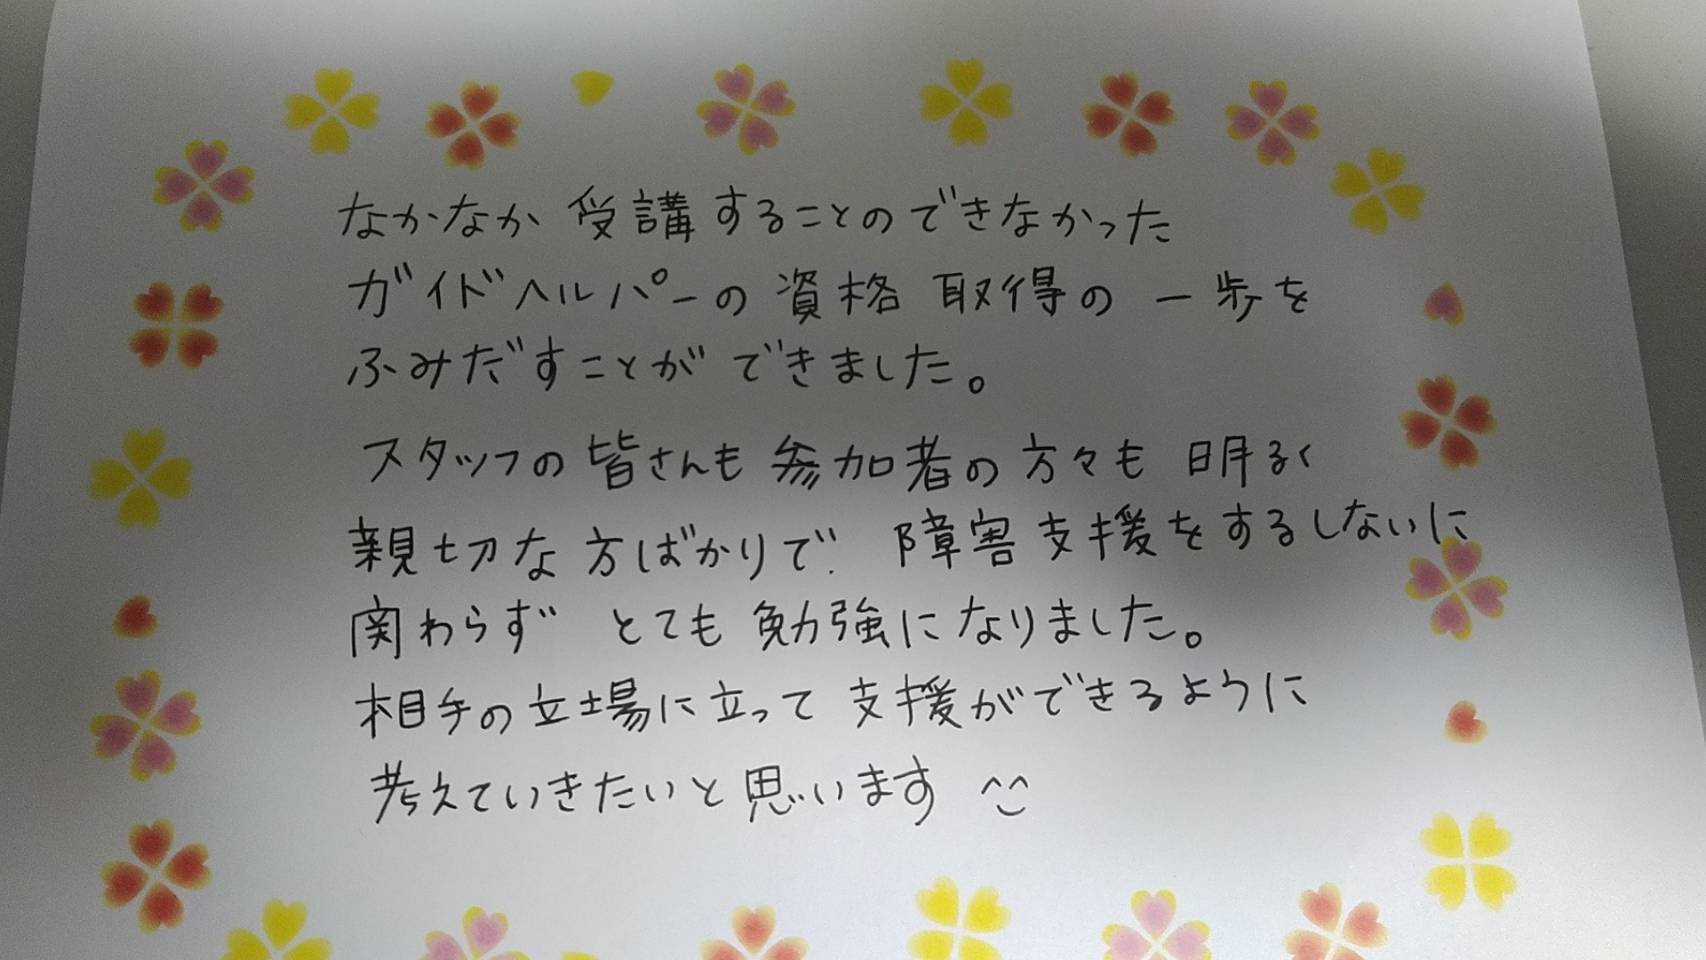 なかなか 受講することのできなかった
ガイドヘルパーの 資格 取得の 一歩を
ふみだすことが できました。
スタッフの 皆さんも 参加者の 方々も 明るく
親切な 方ばかりで 障害支援をするしないに
関わらず とても 勉強になりました。
相手の 立場に立って 支援ができるように
考えていきたいと 思います ^^